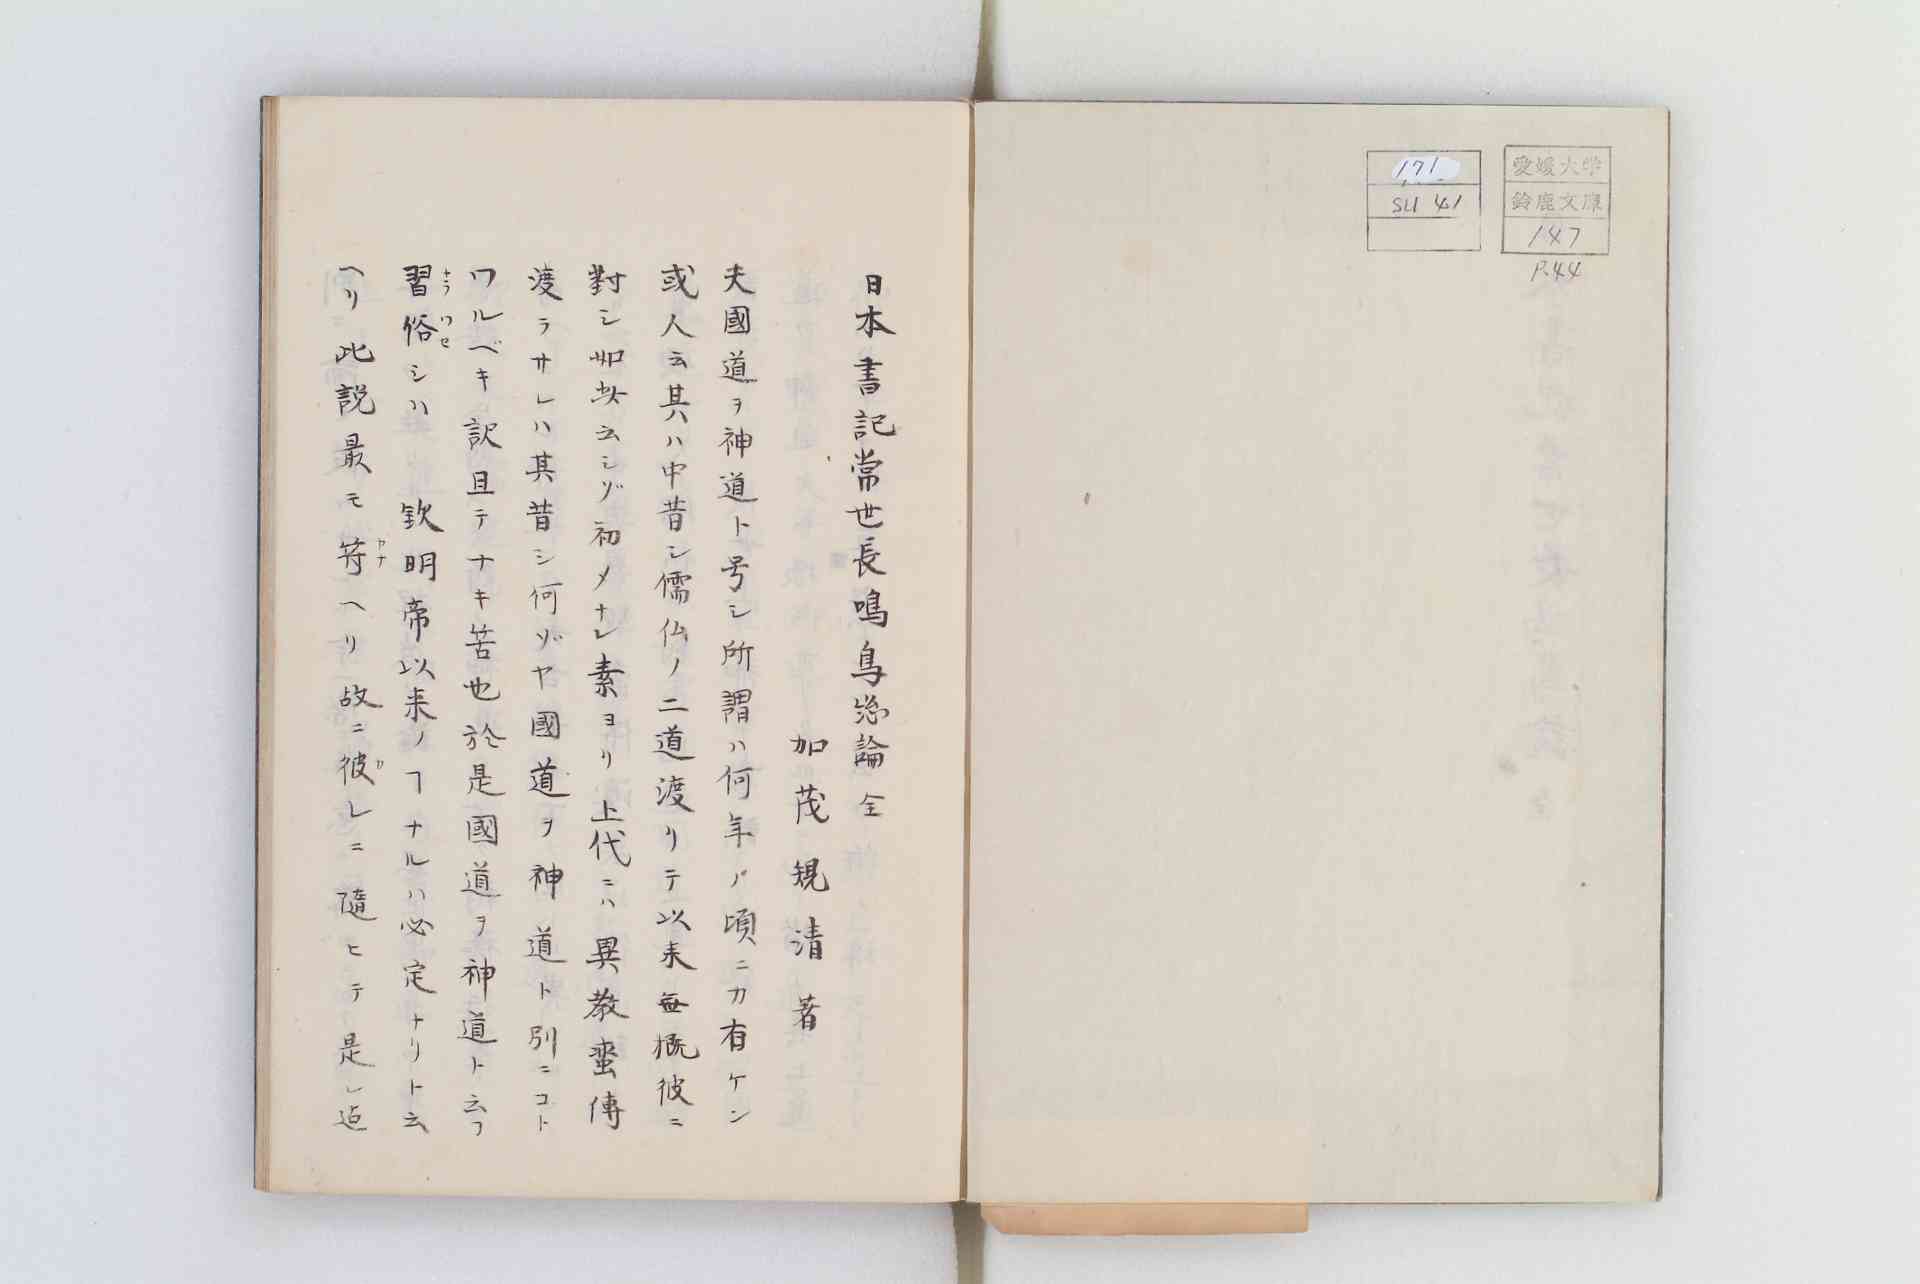 愛媛大学
鈴鹿文庫
147
P.44
171
SU 41
日本書記常世長鳴鳥总論 全
加茂規清著
夫國道ヲ神道ト号シ所謂ハ何年ノ頃ニカ有ケン
或人云其ハ中昔シ儒仏ノ二道渡リテ以来無概彼ニ
對シ如此云シゾ初メナレ素ヨリ上代ニハ異教蛮傳
渡ラサレハ其昔シ何ゾヤ國道ヲ神道ト別ニコト
ワルベキ訳且テナキ苦也於是國道ヲ神道ト云フ
習俗シハ 欽明帝以来ノヿナルハ必定ナリト云
ナラワセ
ヘリ此説最モ符ヘリ故ニ彼レニ隨ヒテ是レ迠
カナ
カ